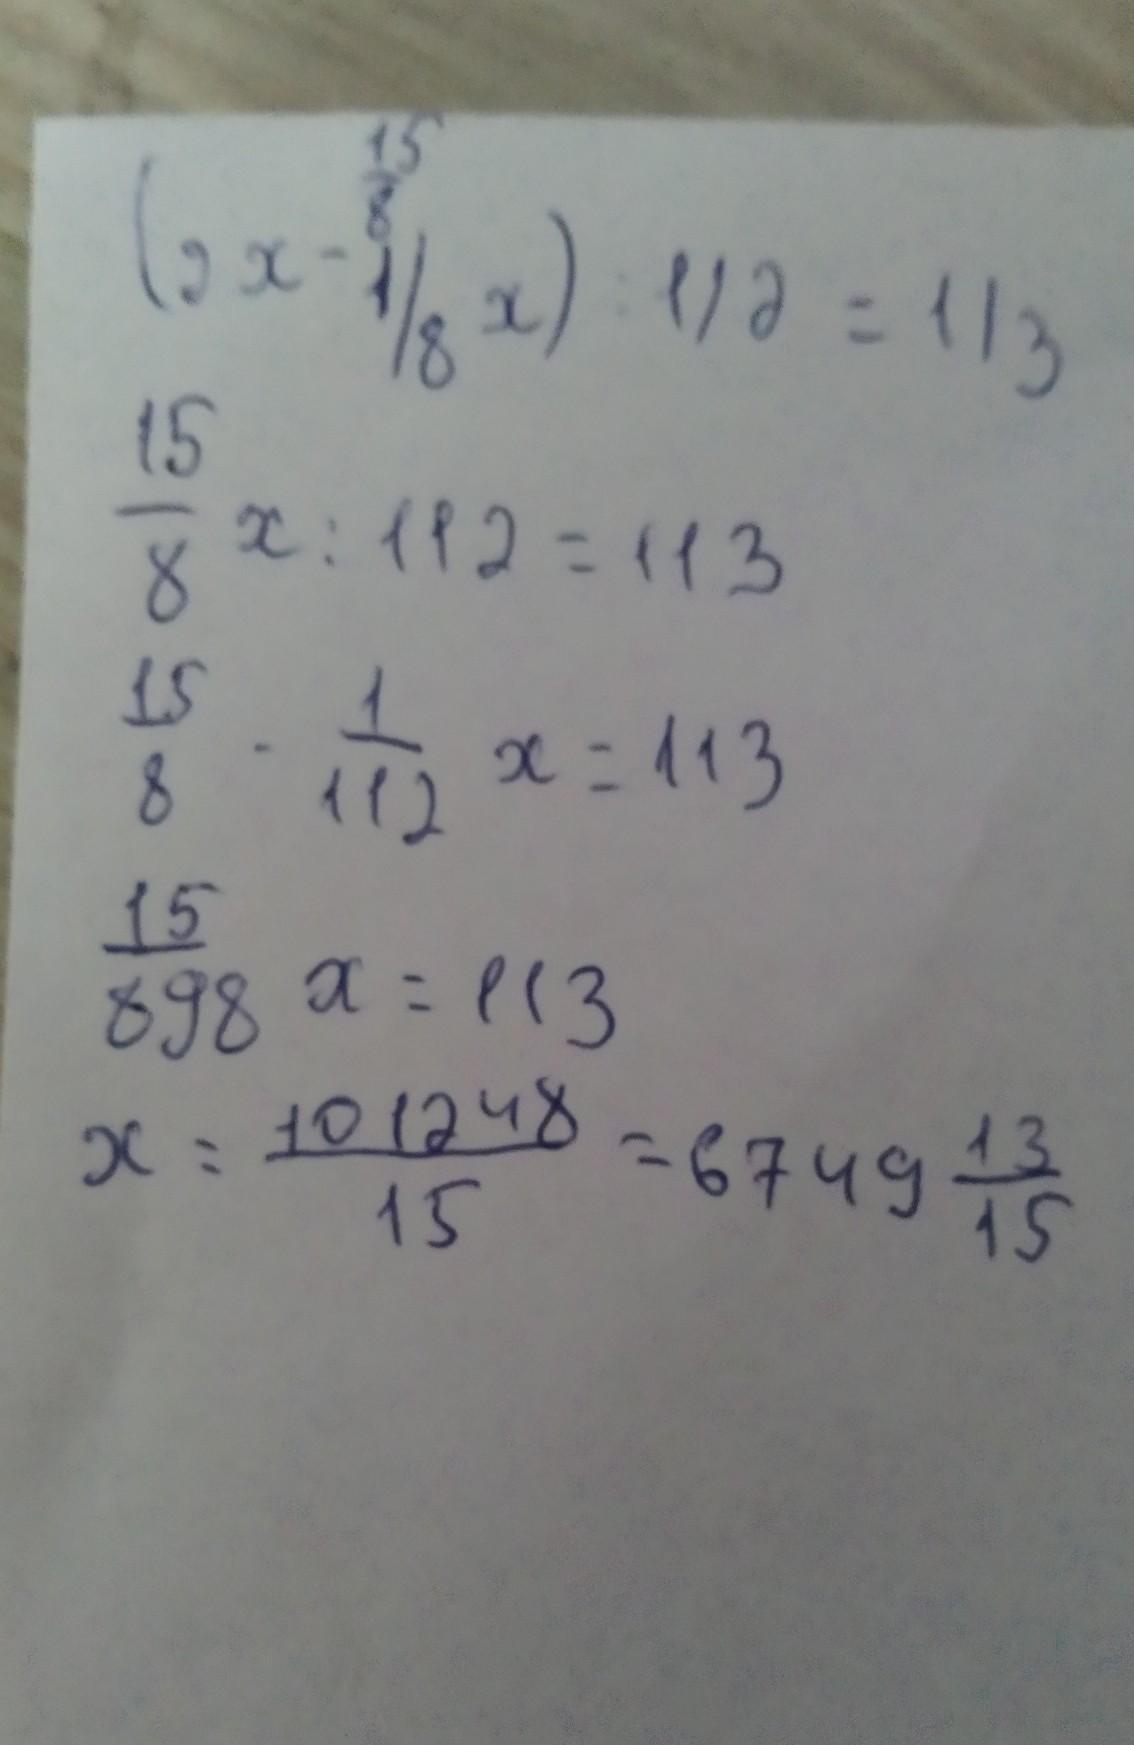 15/8
(2x - 1/8 x) : 112 = 113
15/8 x : 112 = 113
15/8 · 1/112 x = 113
15/898 x = 113
x = 101248/15 = 6749 13/15